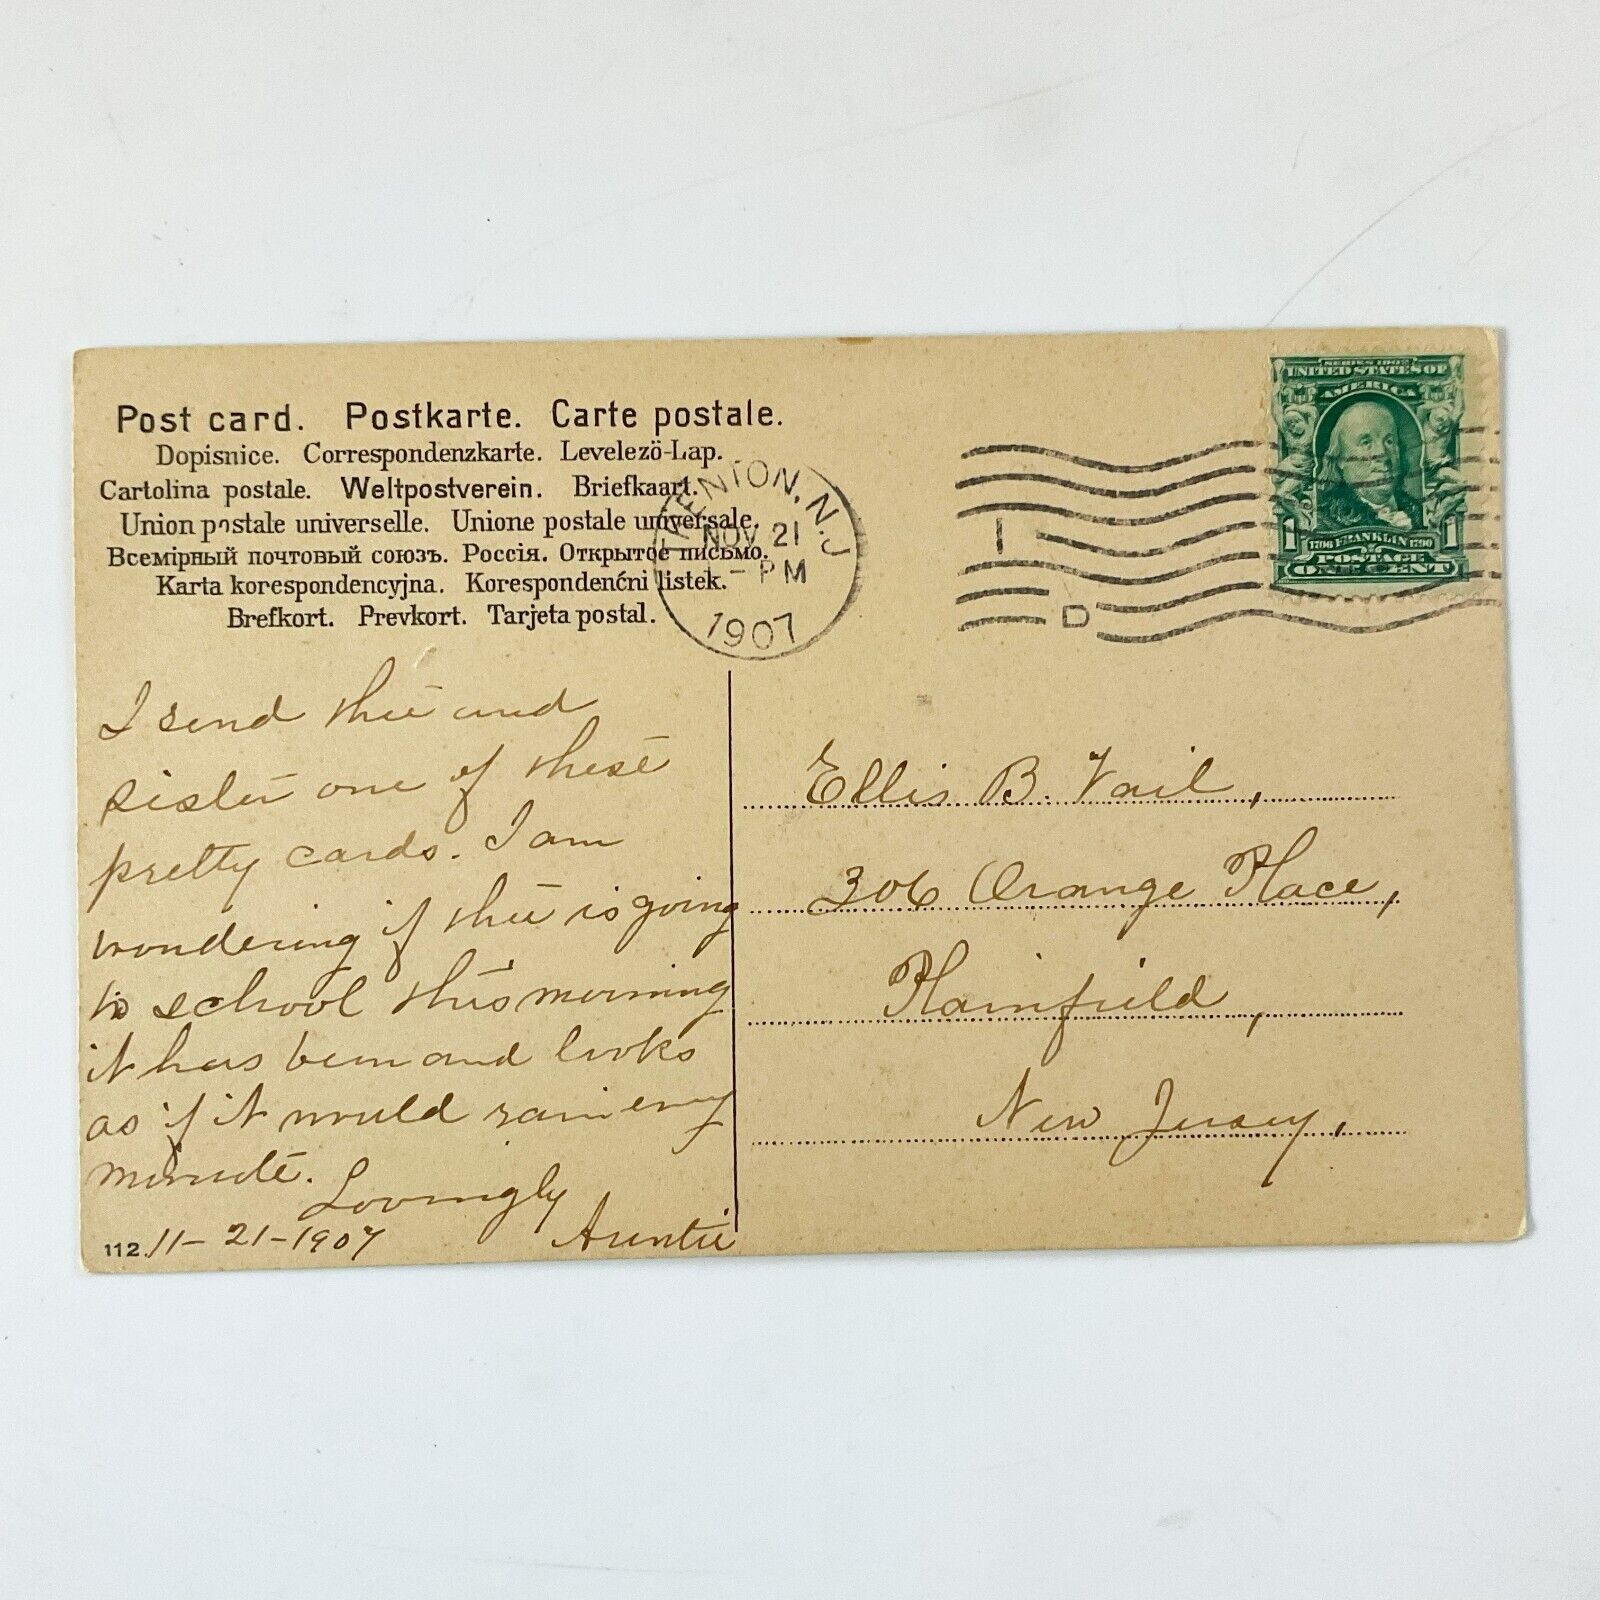 Post card. Postkarte. Carte postale.
Dopisnice. Correspondenzkarte. Levelező-Lap.
Cartolina postale. Weltpostverein. Briefkaart.
Union postale universelle. Unione postale universale.
Всемірный почтовый союзъ. Россія. Открытое письмо.
Karta korespondencyjna. Korespondenćni listek.
Brefkort. Prevkort. Tarjeta postal.
TRENTON, N.J
NOV 21
1-PM
1907
1
D
SERIES 1902
UNITED STATES OF
AMERICA
1 1706 FRANKLIN 1790 1
POSTAGE
ONE CENT
I send thee and
sister one of these
pretty cards. I am
wondering if thee is going
to school this morning
it has been and looks
as if it would rain every
minute.
Lovingly
Auntie
112. 11-21-1907
Ellis B. Vail,
306 Orange Place,
Plainfield,
New Jersey.